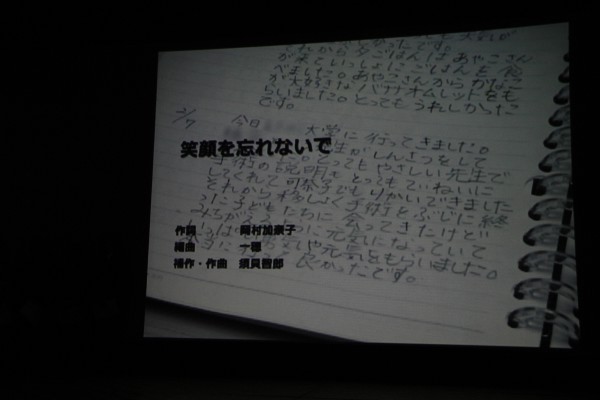 これから夕ごはんはあやこさん
が来ていっしょにごはんを食
べました。あやこさんからかなこ
が大好きなバナナオムレットをも
らいました。とってもうれしかった
です。
2/7 今日 大学に行ってきました。
笑顔を忘れないで
生がしんさつをして
手術の説明をとってもやさしい先生で
してくれて とてもていねいに
子どもりかいできました
それから移しょく手術とぶじに終
った子どもたちに会ってきたけど
元気になっていて
や元気をもらいました。
良かったです。
作詞 岡村加奈子
編曲 一穂
補作・作曲 須貝哲郎